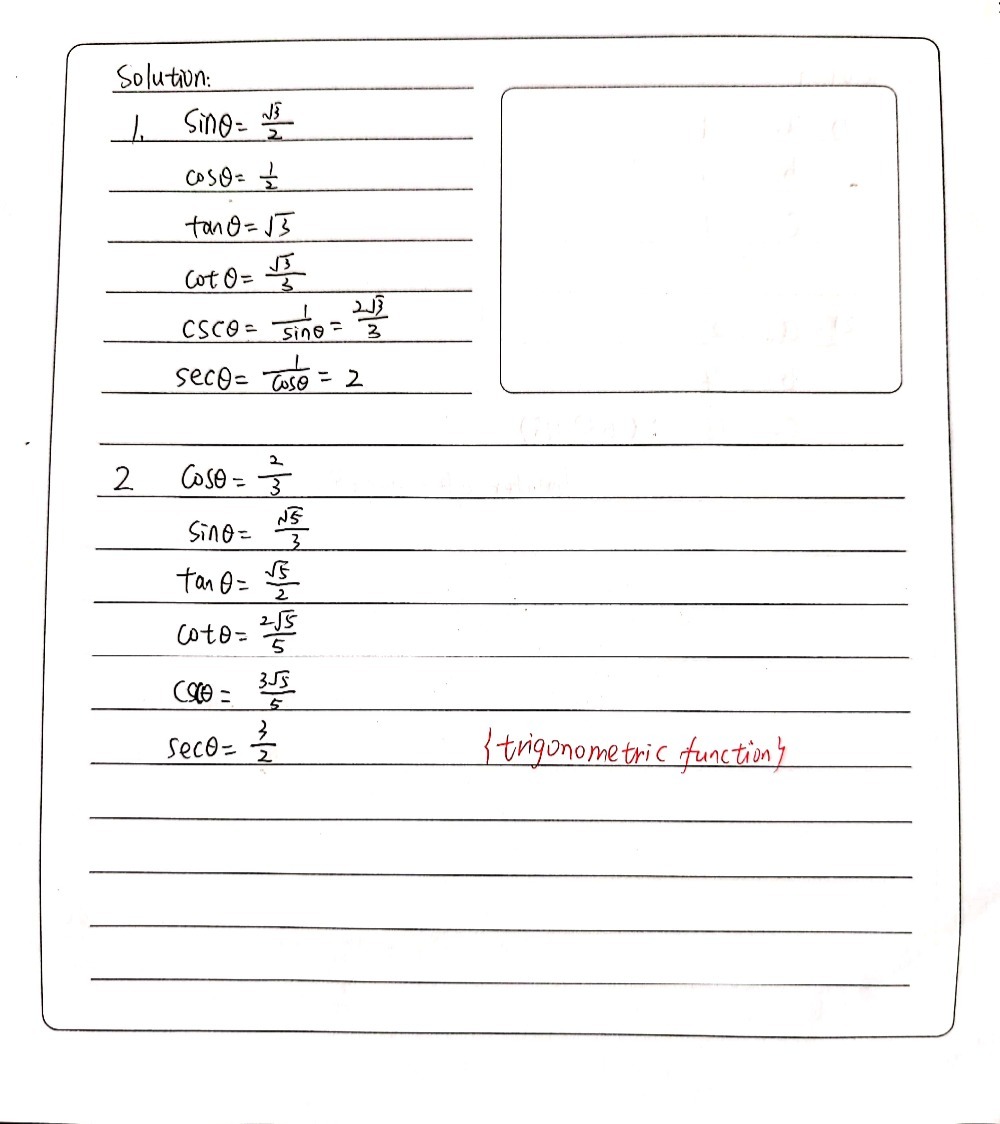 Solution:
1. sinθ = √3/2
cosθ = 1/2
tanθ = √3
cotθ = √3/3
cscθ = 1/sinθ = 2√3/3
secθ = 1/cosθ = 2
2 cosθ = 2/3
sinθ = √5/3
tanθ = √5/2
cotθ = 2√5/5
cscθ = 3√5/5
secθ = 3/2
{trigonometric function}